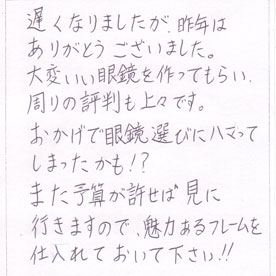 遅くなりましたが、昨年は
ありがとうございました。
大変いい眼鏡を作ってもらい、
周りの評判も上々です。
おかげで眼鏡選びにハマって
しまったかも!?
また予算が許せば見に
行きますので、魅力あるフレームを
仕入れておいて下さい!!